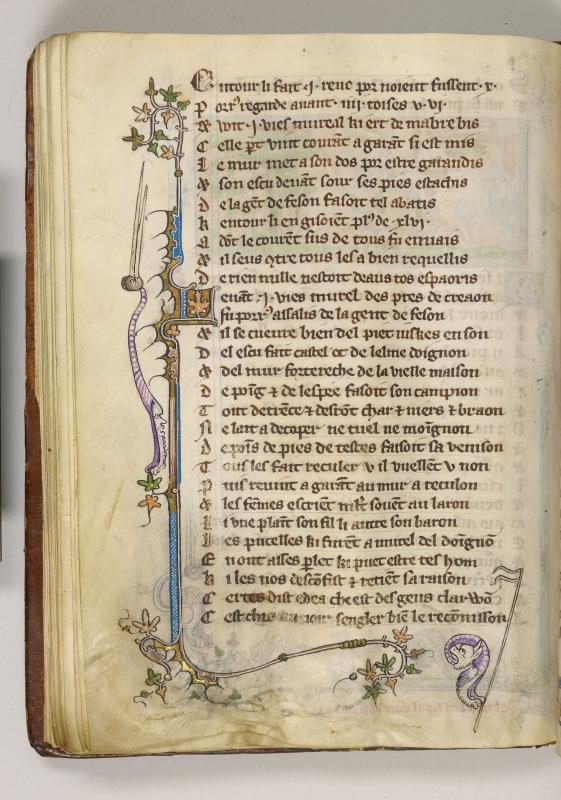 Entour li fait .i. renc por noient fussent .x.
Porr' regarde auant .iiii. toises v .vi.
& voit .i. vies mureil ki ert de mabre bis
Celle pt vint courāt a garāt si est mis
Le mur met a son dos por estre garandis
& son escu deuāt sour ses pies estachis
De la gēt de feson fasoit tel abatis
Kentour li en gisoient plꝰ de .xlvi.
Adōt le courēt sus de tous fu enuais
& il seus ꝯtre tous les a bien requellis
De rien nulle nestoit deaus tos espaoris
Deuāt .i. vies murel des pres de creaon
fu porrꝰ assalis de la gent de feson
& il se cueure bien del piet iuskes en son
Del escu fait castel et de lelme doignon
& del mur fortereche de la vielle maison
De poīg & de lespee fasoit son campion
Tout detrēce & destōt char & ners & braon
Ne lait a decoper ne tuel ne moignon
De poīs de pies de testes faisoit sa venison
Tous les fait reculer v il vuellēt v non
Puis reuint a garāt au mur a reculon
& les fēmes escrient souēt au laron
Li vne plaīt son fil li autre son baron
Les pucelles ki furēt a murel del doignō
En ont asses plet ki puet estre tes hom
Ki les nos descōfist & retiēt sa raison
Certes dist edea che est des gens clarvō
Cest chis au iour sengler biē le reconisson